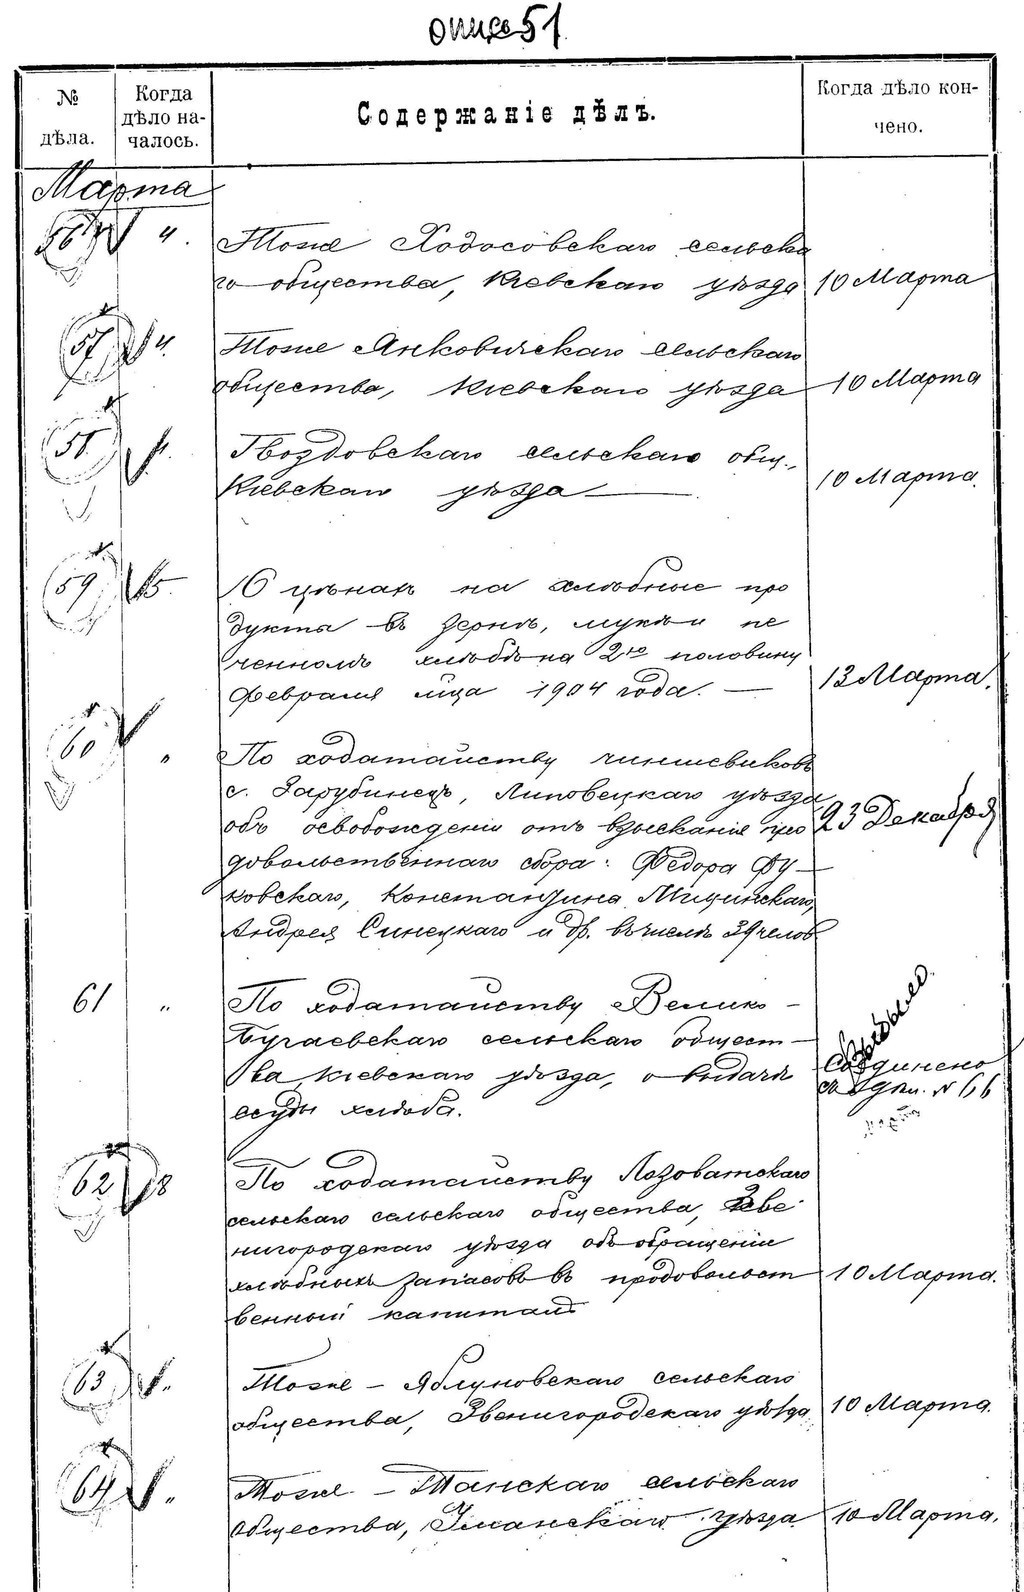 опись 51
№ дѣла.
Когда дѣло на-
чалось.
Содержаніе дѣлъ.
Когда дѣло кон-
чено.
Марта
56 4.
Тоже Ходосовскаго сельска
го общества, Кіевскаго уѣзда 10 Марта
57 4.
Тоже Янковичскаго сельскаго
общества, Кіевскаго уѣзда 10 Марта
58
Гвоздовскаго сельскаго общ.,
Кіевскаго уѣзда — 10 Марта.
59 5
О цѣнахъ на хлѣбные про
дукты въ зернѣ, мукѣ и пе
ченномъ хлѣбѣ на 2ю половину
февраля м҃ца 1904 года. — 13 Марта.
60 "
По ходатайству чиншевиковъ
с. Зарубинецъ, Липовецкаго уѣзда
объ освобожденіи отъ взысканія про 23 Декабря
довольственнаго сбора: Федора Фу-
ковскаго, Константина Мицинскаго,
Андрея Синецкаго и др. въ числѣ 39 челов.
61 "
По ходатайству Велико-
Бугаевскаго сельскаго общест-
ва, Кіевскаго уѣзда, о выдачѣ
ссуды хлѣба.
Выбыло
Соединено
съ дѣл. № 66
62 8
По ходатайству Лозоватскаго
сельскаго сельскаго общества, Зве
нигородскаго уѣзда объ обращеніи
хлѣбныхъ запасовъ въ продовольст 10 Марта.
венный капиталъ
63 "
Тоже – Яблуновскаго сельскаго
общества, Звенигородскаго уѣзда 10 Марта.
64 "
Тоже – Танскаго сельскаго
общества, Уманскаго уѣзда 10 Марта.